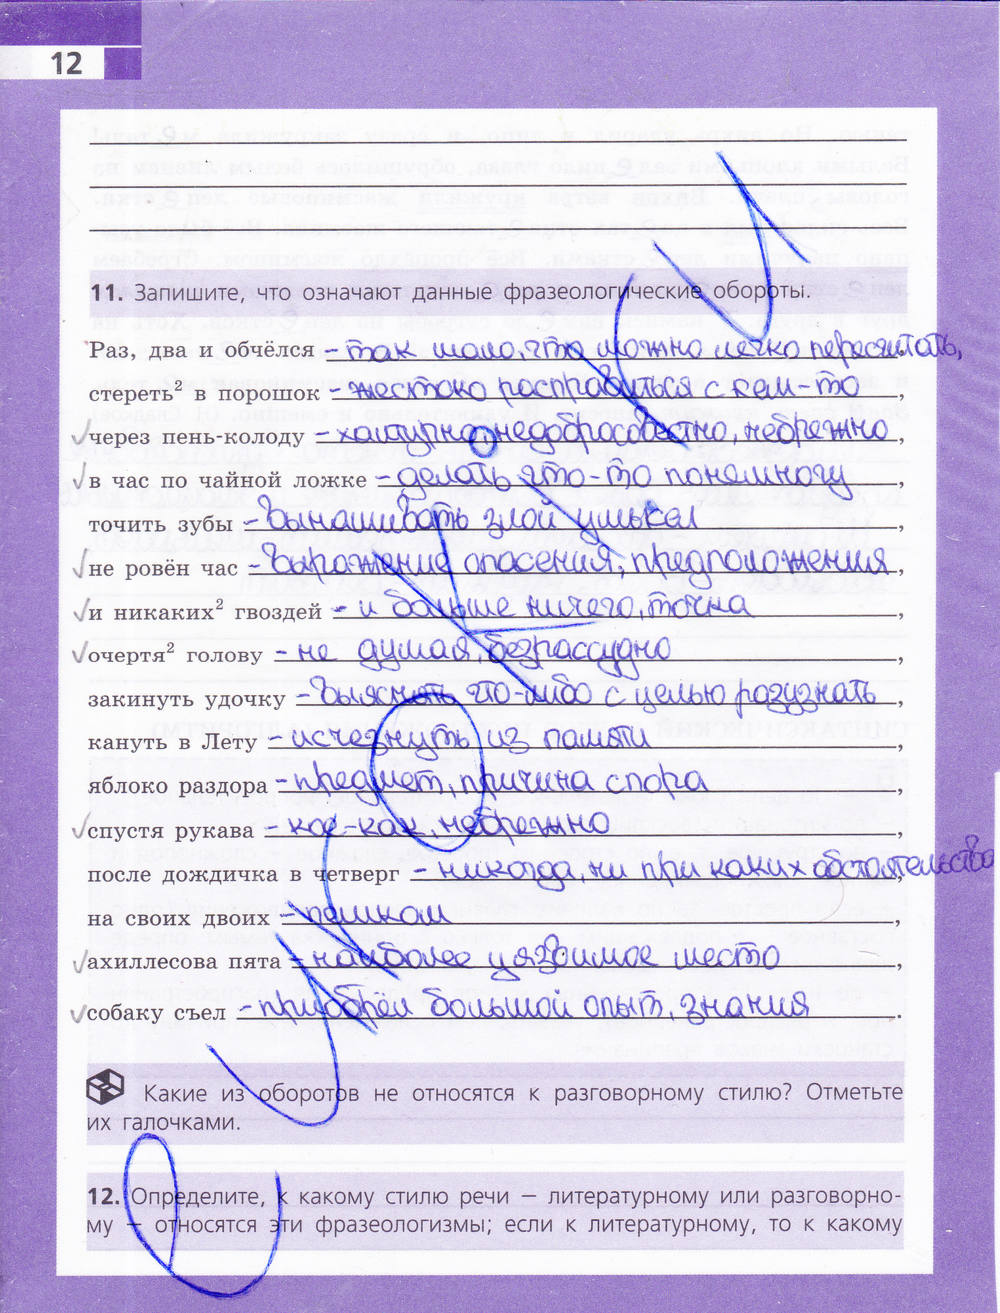 12
11. Запишите, что означают данные фразеологические обороты.
Раз, два и обчёлся – так мало, что можно легко пересчитать,
стереть² в порошок – жестоко расправиться с кем-то,
через пень-колоду – халтурно, недобросовестно, небрежно,
в час по чайной ложке – делать что-то понемногу,
точить зубы – вынашивать злой умысел,
не ровён час – выражение опасения, предположения,
и никаких² гвоздей – и больше ничего, точка,
очертя² голову – не думая, безрассудно,
закинуть удочку – выяснить что-либо с целью разузнать,
кануть в Лету – исчезнуть из памяти,
яблоко раздора – предмет, причина спора,
спустя рукава – кое-как, небрежно,
после дождичка в четверг – никогда, ни при каких обстоятельства,
на своих двоих – пешком,
ахиллесова пята – наиболее уязвимое место,
собаку съел – приобрёл большой опыт, знания.
Какие из оборотов не относятся к разговорному стилю? Отметьте
их галочками.
12. Определите, к какому стилю речи – литературному или разговорно-
му – относятся эти фразеологизмы; если к литературному, то к какому